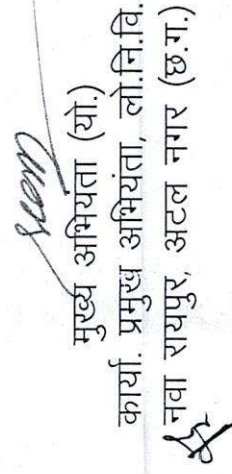 मुख्य अभियंता (यो.)
कार्या. प्रमुख अभियंता, लो.नि.वि.
नवा रायपुर, अटल नगर (छ.ग.)